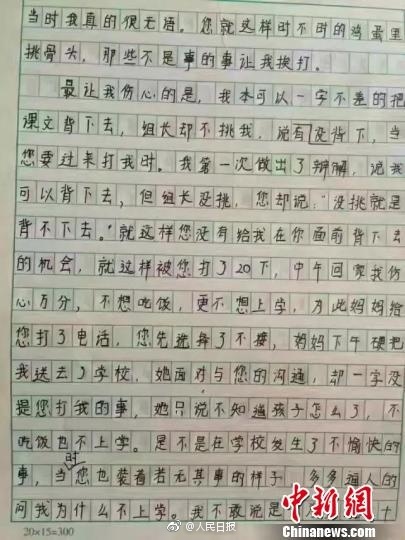 当时我真的很无语。您就这样时不时的鸡蛋里
挑骨头，那些不是事的事让我挨打。
最让我伤心的是，我本可以一字不差的把
课文背下去，组长却不挑我，说我没背下，当
您要过来打我时。我第一次做出了辩解，说我
可以背下去，但组长没挑，您却说：“没挑就是
背不下去。”就这样您没有给我在你面前背下去
的机会，就这样被您打了20下，中午回家我伤
心万分，不想吃饭，更不想上学，为此妈妈给
您打了电话，您先选择了不接，妈妈下午硬把
我送去了学校，她面对与您的沟通，却一字没
提您打我的事，她只说不知道孩子怎么了，不
吃饭也不上学。是不是在学校发生了不愉快的
事，当时您也装着若无其事的样子，多多逼人的
问我为什么不上学。我不敢说是
十
20×15=300
@人民日报
中新网
Chinanews.com